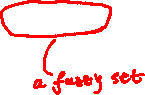 a fuzzy set